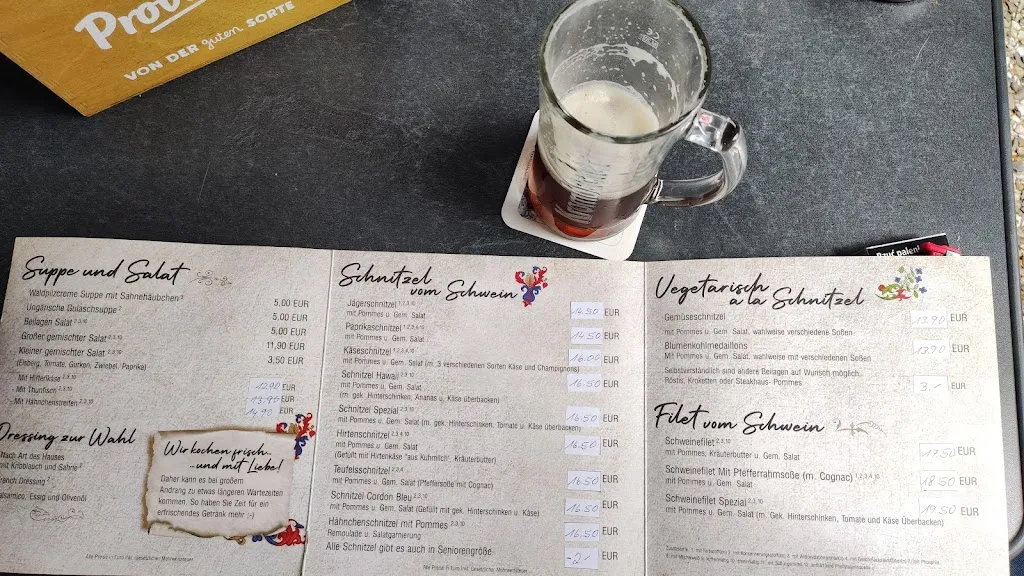 VON DER guten SORTE
Suppe und Salat
Waldpilzcreme Suppe mit Sahnehäubchen 3
5,00 EUR
Ungarische Gulaschsuppe 2
5,00 EUR
Beilagen Salat 2,3,10
5,00 EUR
Großer gemischter Salat 2,3,10
11,90 EUR
Kleiner gemischter Salat 2,3,10
3,50 EUR
(Eisberg, Tomate, Gurken, Zwiebel, Paprika)
Mit Hirtenkäse 2,3,10
12.90 EUR
Mit Thunfisch 2,3,10
13.90 EUR
Mit Hähnchenstreifen 2,3,10
14,90 EUR
Dressing zur Wahl
Nach Art des Hauses
mit Knoblauch und Sahne 2
French Dressing 2
Balsamico, Essig und Olivenöl
Wir kochen frisch..
..und mit Liebe!
Daher kann es bei großem
Andrang zu etwas längeren Wartezeiten
kommen. So haben Sie Zeit für ein
erfrischendes Getränk mehr :-)
Alle Preise in Euro inkl. Gesetzlicher Mehrwertsteuer
Schnitzel
vom Schwein
Jägerschnitzel 1,2,3,10
mit Pommes u. Gem. Salat
14.50 EUR
Paprikaschnitzel 1,2,3,4,10
mit Pommes u. Gem. Salat
14.50 EUR
Käseschnitzel 1,2,3,4,10
mit Pommes u. Gem. Salat (m. 3 verschiedenen Sorten Käse und Champignons)
16.00 EUR
Schnitzel Hawaii 2,3,10
mit Pommes u. Gem. Salat
(m. gek. Hinterschinken, Ananas u. Käse überbacken)
16.50 EUR
Schnitzel Spezial 2,3,10
mit Pommes u. Gem. Salat (m. gek. Hinterschinken, Tomate u. Käse überbacken)
16.50 EUR
Hirtenschnitzel 1,2,3,4,10
mit Pommes u. Gem. Salat
(Gefüllt mit Hirtenkäse "aus Kuhmilch", Kräuterbutter)
16.50 EUR
Teufelsschnitzel 2,3,4
mit Pommes u. Gem. Salat (Pfeffersoße mit Cognac)
16.50 EUR
Schnitzel Cordon Bleu 2,3,10
mit Pommes u. Gem. Salat (Gefüllt mit gek. Hinterschinken u. Käse)
16.50 EUR
Hähnchenschnitzel mit Pommes 2,3,10
Remoulade u. Salatgarnierung
13.50 EUR
Alle Schnitzel gibt es auch in Seniorengröße
-2,- EUR
Alle Preise in Euro inkl. Gesetzlicher Mehrwertsteuer
Vegetarisch
a la Schnitzel
Gemüseschnitzel
mit Pommes u. Gem. Salat, wahlweise verschiedene Soßen
13.90 EUR
Blumenkohlmedaillons
Mit Pommes u. Gem. Salat, wahlweise mit verschiedenen Soßen
13.90 EUR
Selbstverständlich sind andere Beilagen auf Wunsch möglich.
Röstis, Kroketten oder Steakhaus- Pommes
3.- EUR
Filet vom Schwein
Schweinefilet 2,3,10
mit Pommes, Kräuterbutter u. Gem. Salat
17.50 EUR
Schweinefilet Mit Pfefferrahmsoße (m. Cognac) 1,2,3,4,10
mit Pommes u. Gem. Salat
18.50 EUR
Schweinefilet Spezial 2,3,10
mit Pommes u. Gem. Salat (m. Gek. Hinterschinken, Tomate und Käse Überbacken)
19.50 EUR